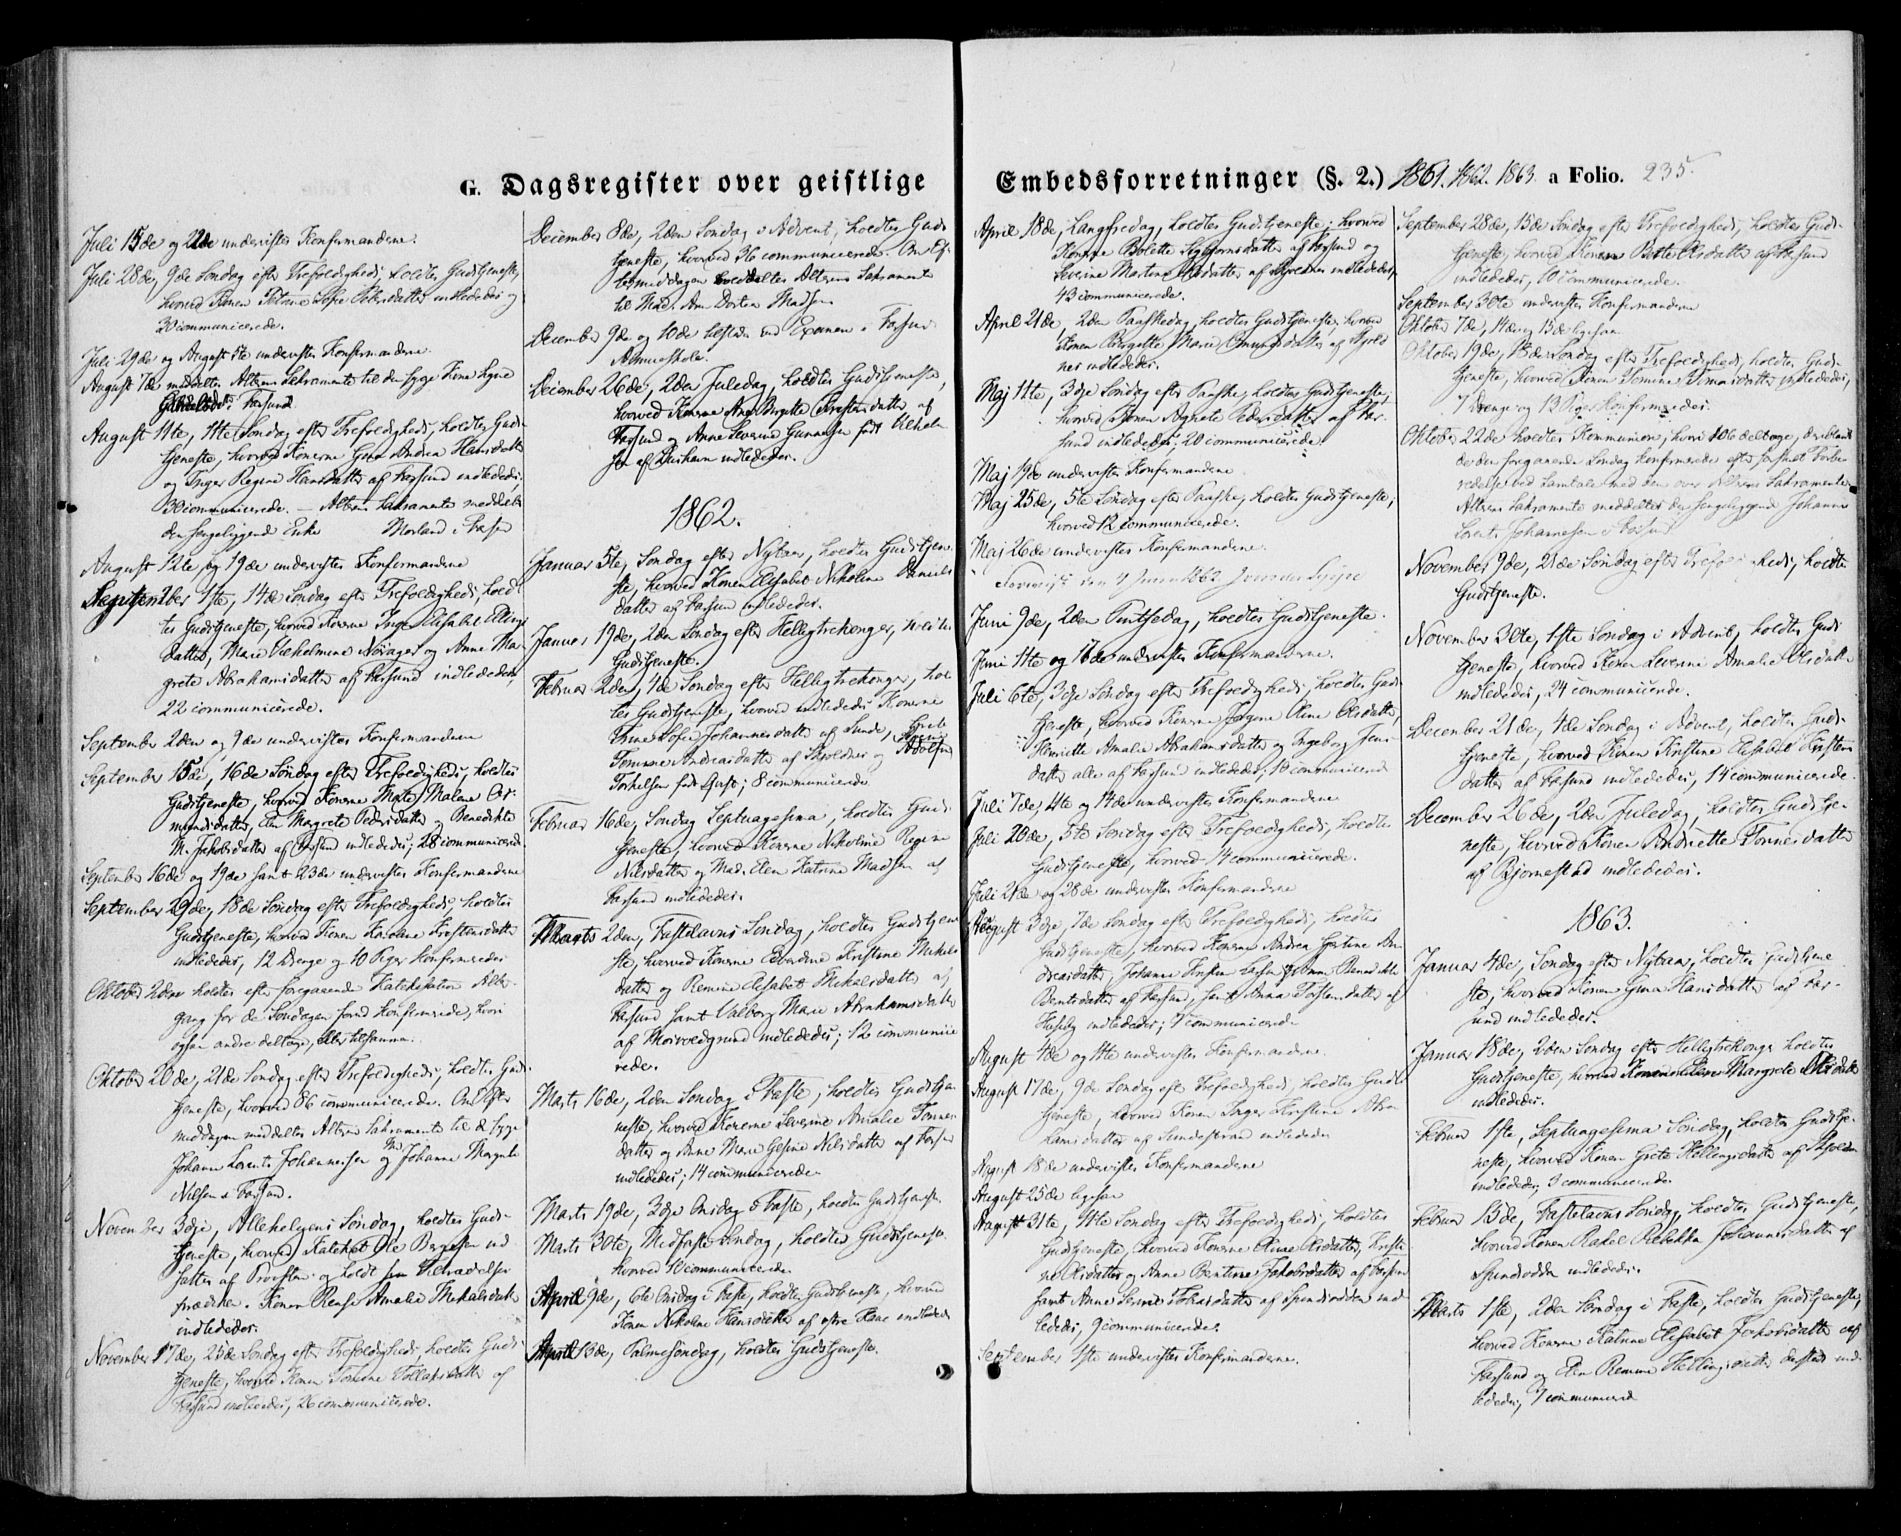 G. Dagsregister over geistlige
Juli 15de og 22de undervistes Konfirmanderne.
Juli 28de, 9de Søndag efter Trefoldigheds, holdtes Gudstjeneste,
hvorved Konen Petrine Sofie Petersdatter indlededes og
30 communicerede.
Juli 29de og August 5te undervistes Konfirmanderne.
August 7de meddeltes Alterens Sakramente til den syge Kone Signe
Gabrielsdatter i Farsund.
August 11te, 11te Søndag efter Trefoldigheds, holdtes Gud-
tjeneste, hvorved Konerne Gina Andrea Hansdatter
og Inger Regine Hansdatter af Farsund indlededes;
30 communicerede. — Alterens Sakramente meddeltes
den sengeliggende Enke Morland i Farsund
August 12te og 19de undervistes Konfirmanderne
September 1ste, 14de Søndag efter Trefoldigheds, hold-
tes Gudstjeneste, hvorved Konerne Inger Elisabet Ellings-
datter, Marie Vilhelmine Nørager og Anne Mar-
grete Abrahamsdatter af Farsund indlededes,
22 communicerede.
September 2den og 9de undervistes Konfirmanderne
September 15de, 16de Søndag efter Trefoldigheds, holdtes
Gudstjeneste, hvorved Konerne Marte Malene Os-
mundsdatter, Elen Margrete Pedersdatter og Benedikte
M. Jakobsdatter af Farsund indlededes; 28 communicerede
September 16de og 19de samt 23de undervistes Konfirmanderne
September 29de, 18de Søndag efter Trefoldigheds holdtes
Gudstjeneste, hvorved Konen Karoline Kristensdatter
indlededes, 12 Drenge og 10 Piger konfirmeredes
Oktober 2den holdtes efter foregaaende Katekisation Alter-
gang for de Søndagen forud Konfirmerede, hvori
ogsaa andre deltoge, tilsamme.
Oktober 20de, 21de Søndag efter Trefoldigheds, holdtes Gud-
tjeneste, hvorved 86 communicerede. Om Efter-
middagen meddeltes Alterens Sakramente til de syge
Johann Lorents Johannessen og Md Johanne Margrete
Nilsen i Farsund.
November 3dje, Allehelgens Søndag, holdtes Guds-
tjeneste, hvorved Kateket Ole Bergesen ind-
sattes af Provsten og holdt sin Tiltrædelses
prædiken. Konen Rense Amalie Mikalsdatter
indlededes.
November 17de, 25de Søndag efter Trefoldigheds holdtes Guds-
tjeneste, hvorved Konen Tomine Tollaksdatter af
Farsund indlededes, 26 communicerede.
December 8de, 2den Søndag i Advent, holdtes Guds-
tjeneste, hvorved 36 communicerede. Om Ef-
termiddagen meddeltes Alterens Sakramente
til Mad. Ane Dorten Madsen
December 9de og 10de tilstede ved Examen i Farsunds
Almueskole.
December 26de, 2den Juledag, holdtes Gudstjeneste,
hvorved Konerne Anne Birgitte Kristensdatter af
Farsund og Anne Severine Gunnarsen født Vilhelm-
sen af Huseham indlededes.
1862.
Januar 5te, Søndag efter Nytaar, holdtes Gudstjene-
ste, hvorved Konen Elisabet Nikoline Daniels
datter af Farsund indlededes.
Januar 19de, 2den Søndag efter Helligtrekonger, holdtes
Gudstjeneste.
Februar 2den, 4de Søndag efter Helligtrekonger, hol-
tes Gudstjeneste, hvorved indlededes Konerne
Trine Sofie Johannesdatter af Sunde,
Tomine Andreasdatter af Skoldnes og
Torkelsen født Qvist; 8 communicerede
Februar 16de, Søndag Septuagesima, holdtes Guds-
tjeneste, hvorved Konerne Nikoline Regine
Nilsdatter og Mad. Elen Katrine Madsen af
Farsund indlededes.
Marts 2den, Fastelavns Søndag, holdtes Gudstjene-
ste, hvorved Konerne Severine Kristine Mikals-
datter og Remine Elisabet Mikalsdatter af
Farsund samt Valborg Marie Abrahamsdatter
af Morvedgrund indlededes; 12 communice
rede.
Marts 16de, 2den Søndag i Faste, holdtes Gudstje-
neste, hvorved Konerne Severine Amalie Tønnes-
datter og Anne Marie Gesine Nilsdatter af Farsund
indlededes; 14 communicerede.
Marts 19de, 3dje Onsdag i Faste, holdtes Gudstjeneste.
Marts 30te, Midfaste Søndag, holdtes Gudstjeneste
hvorved 10 communicerede.
April 9de, 6te Onsdag i Faste, holdtes Gudstjeneste, hvorved
Konen Nikoline Hansdatter af østre Hane indlededes
April 13de, Palmesøndag, holdtes Gudstjeneste.
Embedsforretninger (§. 2.) 1861. 1862. 1863. a Folio. 235.
April 18de, Langfredag, holdtes Gudstjeneste; hvorved
Konerne Bolette Sigbjørnsdatter af Farsund og
Severine Martine Olsdatter af Skoldnes indlededes,
43 communicerede.
April 21de, 2den Paaskedag, holdtes Gudstjeneste, hvorved
Konen Birgitte Marie Omundsdatter af Skold-
nes indlededes.
Maj 11te, 3dje Søndag efter Paaske, holdtes Gudstjeneste,
hvorved Konen Agnete Pedersdatter af Far-
sund indlededes; 20 communicerede.
Maj 19de underviste Konfirmanderne.
Maj 25de, 5te Søndag efter Paaske, holdtes Gudstjeneste,
hvorved 12 communicerede.
Maj 26de underviste Konfirmanderne.
den 4 Juni 1862.
Juni 9de, 2den Pintsedag, holdtes Gudstjeneste.
Juni 11te og 16de underviste Konfirmanderne.
Juli 6te, 3dje Søndag efter Trefoldigheds, holdtes Guds-
tjeneste, hvorved Konerne Jørgine Oline Olsdatter,
Henriette Amalie Abrahamsdatter og Ingeborg Jens-
datter alle af Farsund indlededes, 18 communicerede
Juli 7de, 11te og 14de underviste Konfirmanderne
Juli 20de, 5te Søndag efter Trefoldigheds, holdtes
Gudstjeneste, hvorved 14 communicerede.
Juli 21de og 28de underviste Konfirmanderne
August 3dje, 7de Søndag efter Trefoldigheds, holdtes
Gudstjeneste, hvorved Konerne Andrea Gurine An-
dreasdatter, Johanne Kirstine Larsen og Anna
Berntsdatter af Farsund, samt Anna Torstensdatter af
Huseby indlededes; 7 communicerede
August 4de og 11te underviste Konfirmanderne.
August 17de, 9de Søndag efter Trefoldigheds, holdtes Guds-
tjeneste, hvorved Konen Inger Kristine Abra-
hamsdatter af Sundestrand indlededes
August 18de underviste Konfirmanderne
August 25de ligesaa
August 31te, 11te Søndag efter Trefoldigheds, holdtes
Gudstjeneste, hvorved Konerne Oline Olsdatter, Kristi-
ne Olsdatter og Anne Bentine Jakobsdatter af Farsund
samt Anne Serine Tobiasdatter af Spindsodden ind-
lededes, 9 communicerede.
September 1ste underviste Konfirmanderne.
September 28de, 15de Søndag efter Trefoldigheds, holdtes Gud-
tjeneste, hvorved Konen Berte Olsdatter af Farsund
indlededes, 10 communicerede.
September 30te underviste Konfirmanderne
Oktober 7de, 14de og 15de ligesaa
Oktober 19de, 18de Søndag efter Trefoldigheds, holdtes Guds-
tjeneste, hvorved Konen Tomine Tomasdatter indlededes,
7 Drenge og 13 Piger konfirmeredes.
Oktober 22de holdtes Kommunion, hvori 106 deltoge, deriblandt
de den foregaaende Søndag konfirmerede efter forsøgt Forbe-
redelse ved Samtale med dem over Alterens Sakramente.
Alterens Sakramente meddeltes den sengeliggende Johanne
Lorents Johannesen i Farsund
November 9de, 21de Søndag efter Trefoldigheds, holdtes
Gudstjeneste.
November 30te, 1ste Søndag i Advent, holdtes Guds-
tjeneste, hvorved Konen Severine Amalie Olsdatter
indlededes, 24 communicerede.
December 21de, 4de Søndag i Advent, holdtes Guds-
tjeneste, hvorved Konen Kristine Elisabet Kristens
datter af Farsund indlededes, 14 communicerede.
December 26de, 2den Juledag, holdtes Gudstje-
neste, hvorved Konen Andriette Tønnesdatter
af Bjørnestad indlededes.
1863.
Januar 4de, Søndag efter Nytaar, holdtes Gudstjene
ste, hvorved Konen Gina Hansdatter af Far-
sund indlededes.
Januar 18de, 2den Søndag efter Helligtrekonger holdtes
Gudstjeneste, hvorved Konen Elene Margrete Olsdatter
indlededes.
Februar 1ste, Septuagesima Søndag, holdtes Gudstje-
neste, hvorved Konen Grete Hellingsdatter af Skoldnes
indlededes, 3 communicerede
Februar 15de, Fastelavns Søndag, holdtes Gudstjeneste,
hvorved Konen Rakel Rebekka Johannesdatter af
Spindsodden indlededes.
Marts 1ste, 2den Søndag i Faste, holdtes Gudstjeneste,
hvorved Konerne Katrine Elisabet Jakobsdatter af
Farsund og Elen Remine Hellingsdatter dersteds ind-
lededes, 7 communicerede